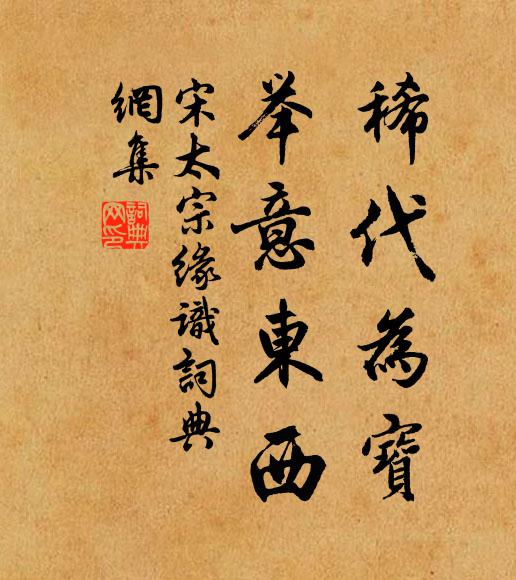 稀代為寶
举意東西
宋太宗缘識詞典
網集
詞典网印